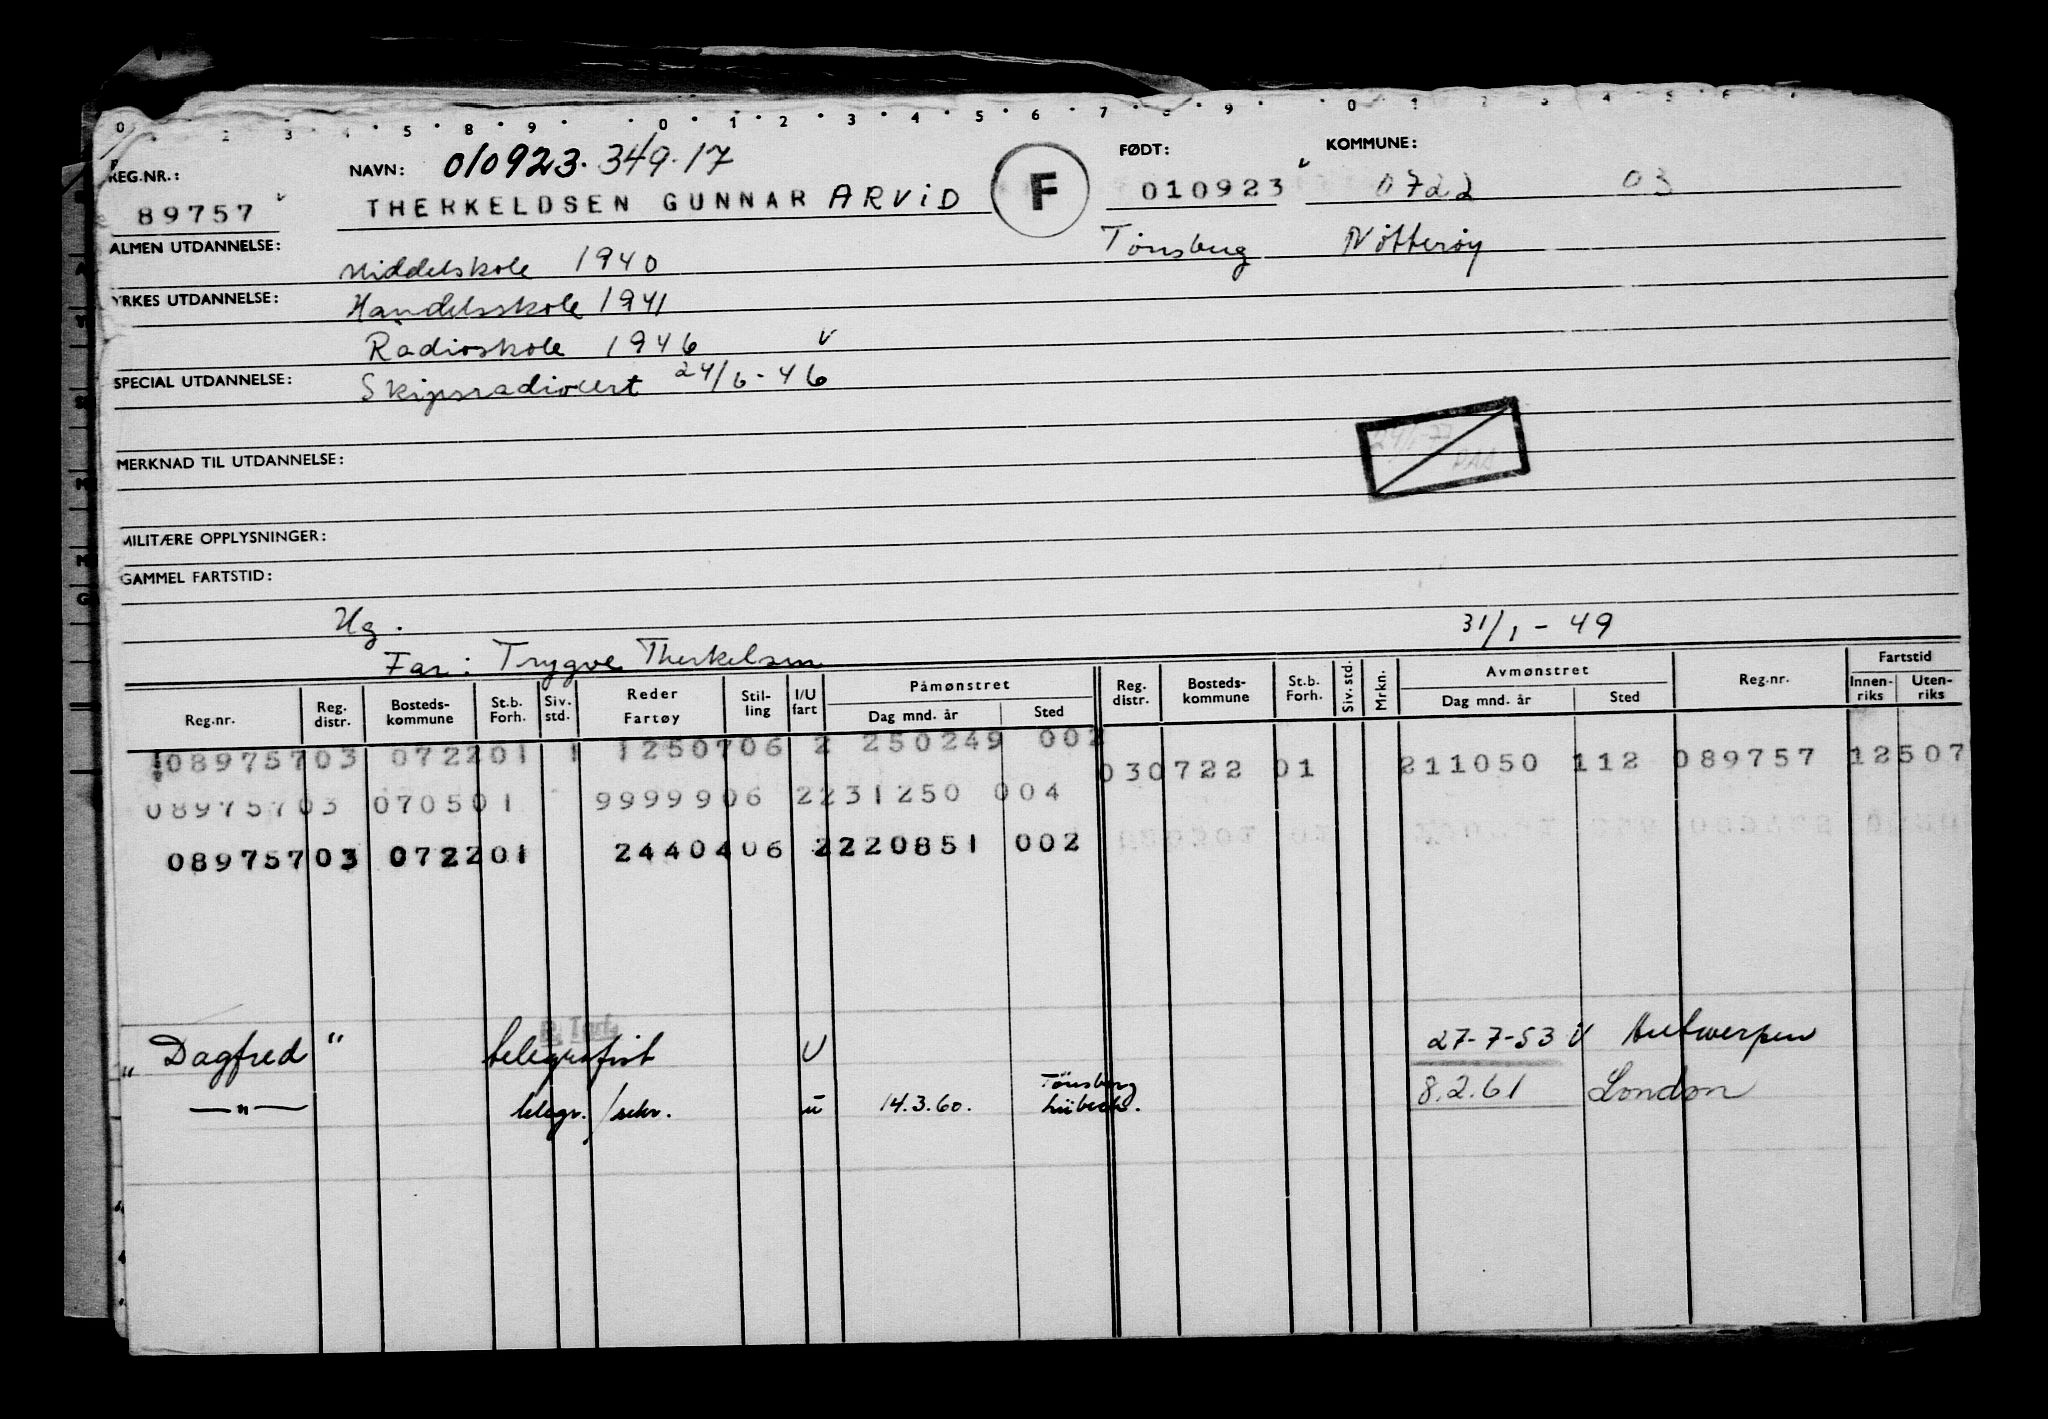 REG.NR.:
89757
NAVN: 010923.349.17
THERKELDSEN GUNNAR ARViD
F
FØDT:
010923
Tønsberg
KOMMUNE:
0722 03
Nøtterøy
ALMEN UTDANNELSE: Middelskole 1940
YRKES UTDANNELSE: Handelsskole 1941
Radioskole 1946 v
SPECIAL UTDANNELSE: Skipsradiocert 24/6-46
MERKNAD TIL UTDANNELSE:
MILITÆRE OPPLYSNINGER:
GAMMEL FARTSTID:
Ug. 31/1-49
Far: Trygve Therkelsen
Reg.nr. Reg. distr. Bosteds-kommune St.b. Forh. Siv. std. Reder Fartøy Stil-ling I/U fart Påmønstret Dag mnd. år Sted Reg. distr. Bosteds-kommune St.b. Forh. Siv. std. Mrkn. Avmønstret Dag mnd. år Sted Reg.nr. Fartstid Innen-riks Uten-riks
089757 03 0722 01 1 12507 06 2 250249 002 03 0722 01 211050 112 089757 12507
089757 03 0705 01 99999 06 2 231250 004
089757 03 0722 01 24404 06 2 220851 002
"Dagfred" telegrafist U 27-7-53 U Antwerpen
—"— telegr./sekr. u 14.3.60. Tønsberg Lübeck. 8.2.61 London